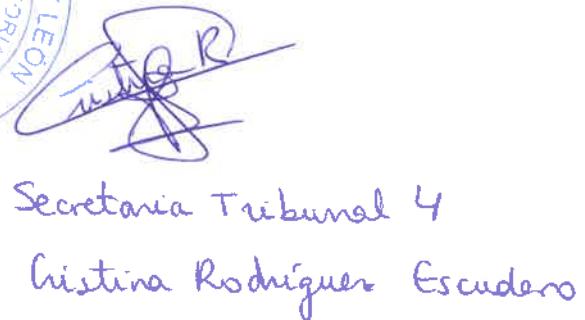 LEÓN
Cristina R
Secretaria Tribunal 4
Cristina Rodríguez Escudero